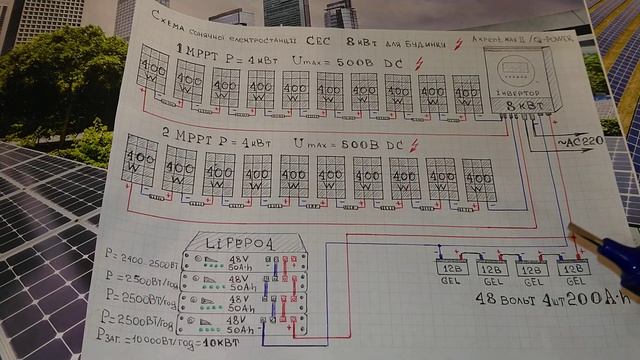 Схема сонячної електростанції СЕС 8 кВт для будинку
Axpert MAX II / Q-POWER
1 MPPT P = 4кВт Umax = 500В DC
400 W 400 W 400 W 400 W 400 W 400 W 400 W 400 W 400 W 400 W
Інвертор
8 кВт
2 MPPT P = 4кВт Umax = 500В DC
~AC220
400 W 400 W 400 W 400 W 400 W 400 W 400 W 400 W 400 W 400 W
LIFEPO4
P= 2400..2500ВТ
48V
50Ah
P=2500ВТ/год
48V
50Ah
P=2500ВТ/год
48V
50Ah
P=2500ВТ/год
48V
50Ah
Pзаг.=10000ВТ/год=10кВТ
12В 12В 12В 12В
GEL GEL GEL GEL
48 Вольт 4шт 200A·h